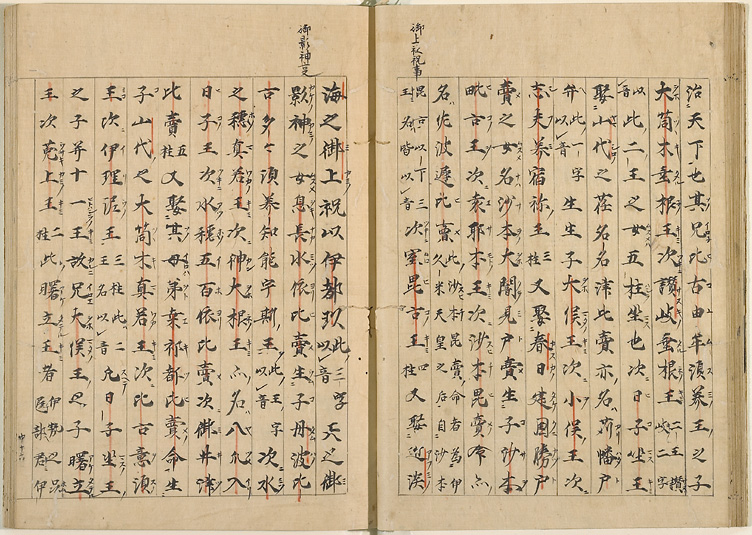 御上祝事
治天下也其兄比古由牟須美王之子
大筒木垂根王次讚岐垂根王二王讚岐二字
以音此二王之女五柱坐也次日子坐王
娶山代之荏名津比賣亦名苅幡戸
弁此一字以音生子大俣王次小俣王次
志夫美宿祢王三柱又娶春日建國勝戸
賣之女名沙本大闇見戸賣生子沙本
毗古王次袁耶本王次沙本毘賣命亦
名佐波遲比賣此沙本毘賣命者為伊久米天皇之后自沙本
毘古以下三王名皆以音次室毘古王四柱又娶近淡
御影神是
海之御上祝以伊都玖此三字以音天之御
影神之女息長水依比賣生子丹波比
古多々須美知能宇斯王此王字以音次水
之穗真若王次神大根王亦名八爪入
日子王次水穗五百依比賣次御井津
比賣五柱又娶其母弟袁祁都比賣命生
子山代之大筒木真若王次比古意須
王次伊理泥王三柱此二王名以音凡日子坐王
之子并十一王故兄大俣王之子曙立
王次菟上王二柱此曙立王者伊勢之品遲部君伊